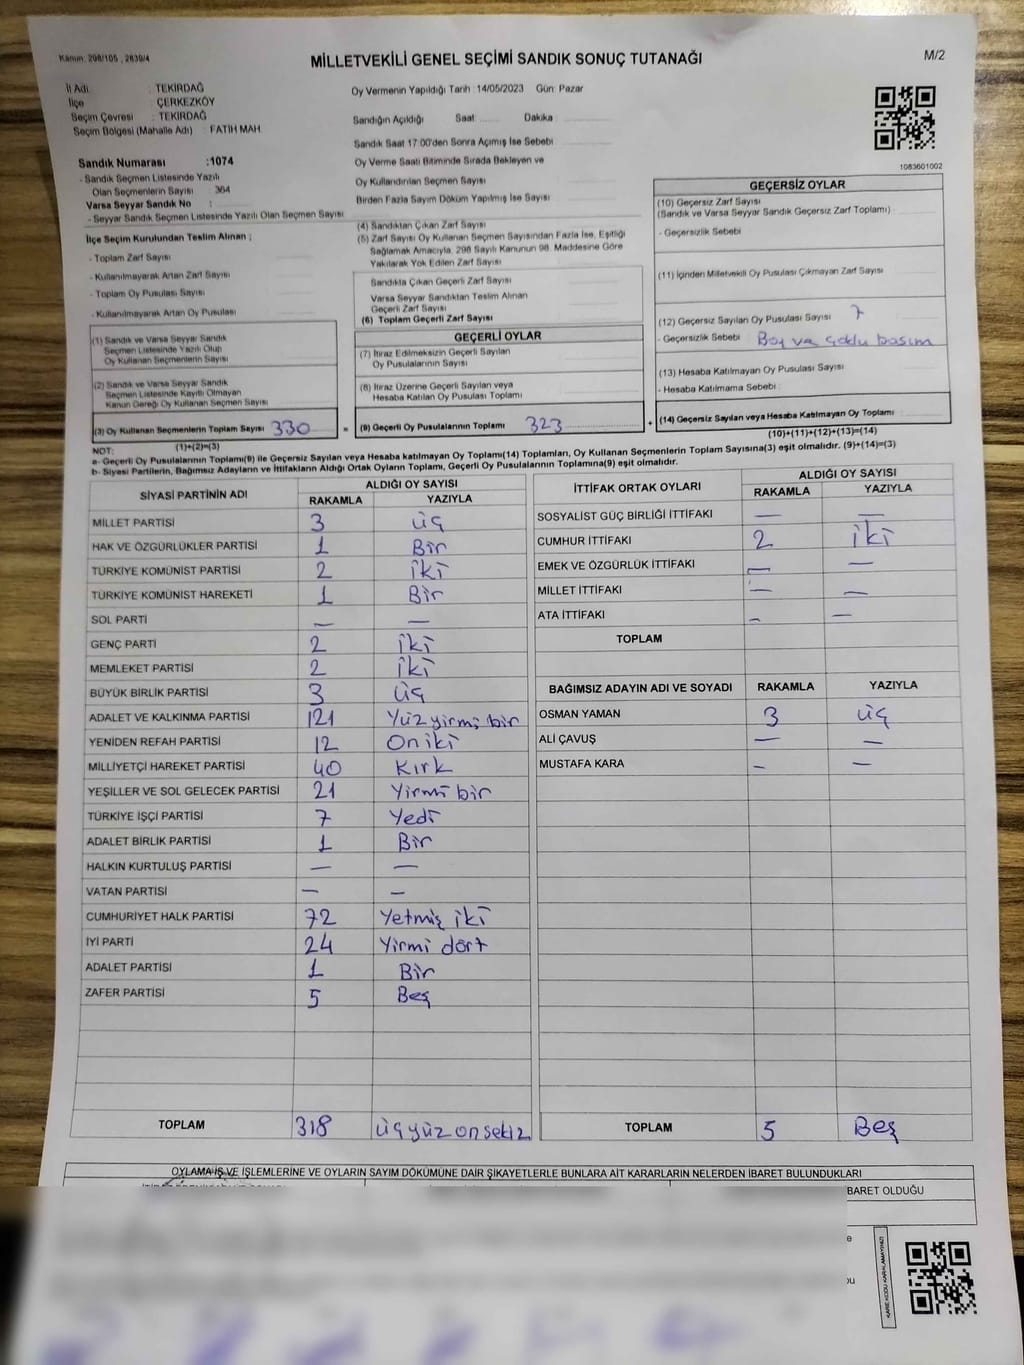 Kanun: 298/105 , 2839/4
MİLLETVEKİLİ GENEL SEÇİMİ SANDIK SONUÇ TUTANAĞI
M/2
İl Adı : TEKİRDAĞ
İlçe : ÇERKEZKÖY
Seçim Çevresi : TEKİRDAĞ
Seçim Bölgesi (Mahalle Adı) : FATİH MAH.
Sandık Numarası :1074
- Sandık Seçmen Listesinde Yazılı
Olan Seçmenlerin Sayısı 364
Varsa Seyyar Sandık No :
- Seyyar Sandık Seçmen Listesinde Yazılı Olan Seçmen Sayısı
İlçe Seçim Kurulundan Teslim Alınan ;
- Toplam Zarf Sayısı
- Kullanılmayarak Artan Zarf Sayısı
- Toplam Oy Pusulası Sayısı
- Kullanılmayarak Artan Oy Pusulası
(1) Sandık ve Varsa Seyyar Sandık
Seçmen Listesinde Yazılı Olup
Oy Kullanan Seçmenlerin Sayısı
(2) Sandık ve Varsa Seyyar Sandık
Seçmen Listesinde Kayıtlı Olmayan
Kanun Gereği Oy Kullanan Seçmen Sayısı
(3) Oy Kullanan Seçmenlerin Toplam Sayısı 330
(1)+(2)=(3)
Oy Vermenin Yapıldığı Tarih :14/05/2023 Gün: Pazar
Sandığın Açıldığı Saat Dakika :
Sandık Saat 17:00'den Sonra Açımış İse Sebebi
Oy Verme Saati Bitiminde Sırada Bekleyen ve
Oy Kullandırılan Seçmen Sayısı
Birden Fazla Sayım Döküm Yapılmış İse Sayısı
(4) Sandıktan Çıkan Zarf Sayısı
(5) Zarf Sayısı Oy Kullanan Seçmen Sayısından Fazla İse, Eşitliği
Sağlamak Amacıyla, 298 Sayılı Kanunun 98. Maddesine Göre
Yakılarak Yok Edilen Zarf Sayısı
Sandıkta Çıkan Geçerli Zarf Sayısı
Varsa Seyyar Sandıktan Teslim Alınan
Geçerli Zarf Sayısı
(6) Toplam Geçerli Zarf Sayısı
GEÇERLİ OYLAR
(7) İtiraz Edilmeksizin Geçerli Sayılan
Oy Pusulalarının Sayısı
(8) İtiraz Üzerine Geçerli Sayılan veya
Hesaba Katılan Oy Pusulası Toplamı
= (9) Geçerli Oy Pusulalarının Toplamı 323 +
1083601002
GEÇERSİZ OYLAR
(10) Geçersiz Zarf Sayısı
(Sandık ve Varsa Seyyar Sandık Geçersiz Zarf Toplamı)
- Geçersizlik Sebebi
(11) İçinden Milletvekili Oy Pusulası Çıkmayan Zarf Sayısı
(12) Geçersiz Sayılan Oy Pusulası Sayısı 7
- Geçersizlik Sebebi Boş ve çoklu basım
(13) Hesaba Katılmayan Oy Pusulası Sayısı
- Hesaba Katılmama Sebebi :
(14) Geçersiz Sayılan veya Hesaba Katılmayan Oy Toplamı
(10)+(11)+(12)+(13)=(14)
NOT:
a- Geçerli Oy Pusulalarının Toplamı(9) ile Geçersiz Sayılan veya Hesaba katılmayan Oy Toplamı(14) Toplamları, Oy Kullanan Seçmenlerin Toplam Sayısına(3) eşit olmalıdır. (9)+(14)=(3)
b- Siyasi Partilerin, Bağımsız Adayların ve İttifakların Aldığı Ortak Oyların Toplamı, Geçerli Oy Pusulalarının Toplamına(9) eşit olmalıdır.
SİYASİ PARTİNİN ADI
ALDIĞI OY SAYISI
RAKAMLA YAZIYLA
MİLLET PARTİSİ 3 üç
HAK VE ÖZGÜRLÜKLER PARTİSİ 1 Bir
TÜRKİYE KOMÜNİST PARTİSİ 2 iki
TÜRKİYE KOMÜNİST HAREKETİ 1 Bir
SOL PARTİ — —
GENÇ PARTİ 2 iki
MEMLEKET PARTİSİ 2 iki
BÜYÜK BİRLİK PARTİSİ 3 üç
ADALET VE KALKINMA PARTİSİ 121 Yüz yirmi bir
YENİDEN REFAH PARTİSİ 12 On iki
MİLLİYETÇİ HAREKET PARTİSİ 40 Kırk
YEŞİLLER VE SOL GELECEK PARTİSİ 21 Yirmi bir
TÜRKİYE İŞÇİ PARTİSİ 7 Yedi
ADALET BİRLİK PARTİSİ 1 Bir
HALKIN KURTULUŞ PARTİSİ — —
VATAN PARTİSİ — —
CUMHURİYET HALK PARTİSİ 72 Yetmiş iki
İYİ PARTİ 24 Yirmi dört
ADALET PARTİSİ 1 Bir
ZAFER PARTİSİ 5 Beş
TOPLAM 318 üçyüz on sekiz
İTTİFAK ORTAK OYLARI
ALDIĞI OY SAYISI
RAKAMLA YAZIYLA
SOSYALİST GÜÇ BİRLİĞİ İTTİFAKI — —
CUMHUR İTTİFAKI 2 iki
EMEK VE ÖZGÜRLÜK İTTİFAKI — —
MİLLET İTTİFAKI — —
ATA İTTİFAKI — —
TOPLAM
BAĞIMSIZ ADAYIN ADI VE SOYADI RAKAMLA YAZIYLA
OSMAN YAMAN 3 üç
ALİ ÇAVUŞ — —
MUSTAFA KARA — —
TOPLAM 5 Beş
OYLAMA İŞ VE İŞLEMLERİNE VE OYLARIN SAYIM DÖKÜMÜNE DAİR ŞİKAYETLERLE BUNLARA AİT KARARLARIN NELERDEN İBARET BULUNDUKLARI
BARET OLDUĞU
KARE KODU KARALAMAYINIZ!